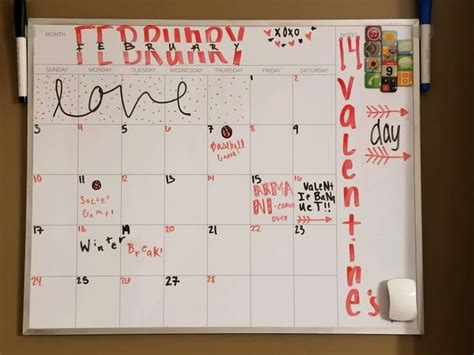 MONTH FEBRUARY
FEBRUARY
xoxo
NOTES
SUNDAY MONDAY TUESDAY WEDNESDAY THURSDAY FRIDAY SATURDAY
love 1 2
3 4 5 6 7 8 9
Game!
10 11 12 13 14 15 16
Soccer
Game!
ARMA
NI-
over
VaLeNt
Ie BaNq
UeT!!
17 18 19 20 21 22 23
Winter
Break!
24 25 26 27 28
14
valentine's
day
9